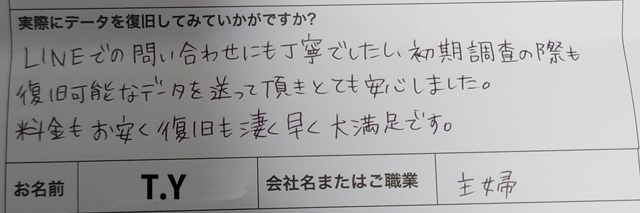 実際にデータを復旧してみていかがですか?
LINEでの問い合わせにも丁寧でしたし、初期調査の際も
復旧可能なデータを送って頂きとても安心しました。
料金もお安く復旧も凄く早く大満足です。
お名前 T.Y 会社名またはご職業 主婦